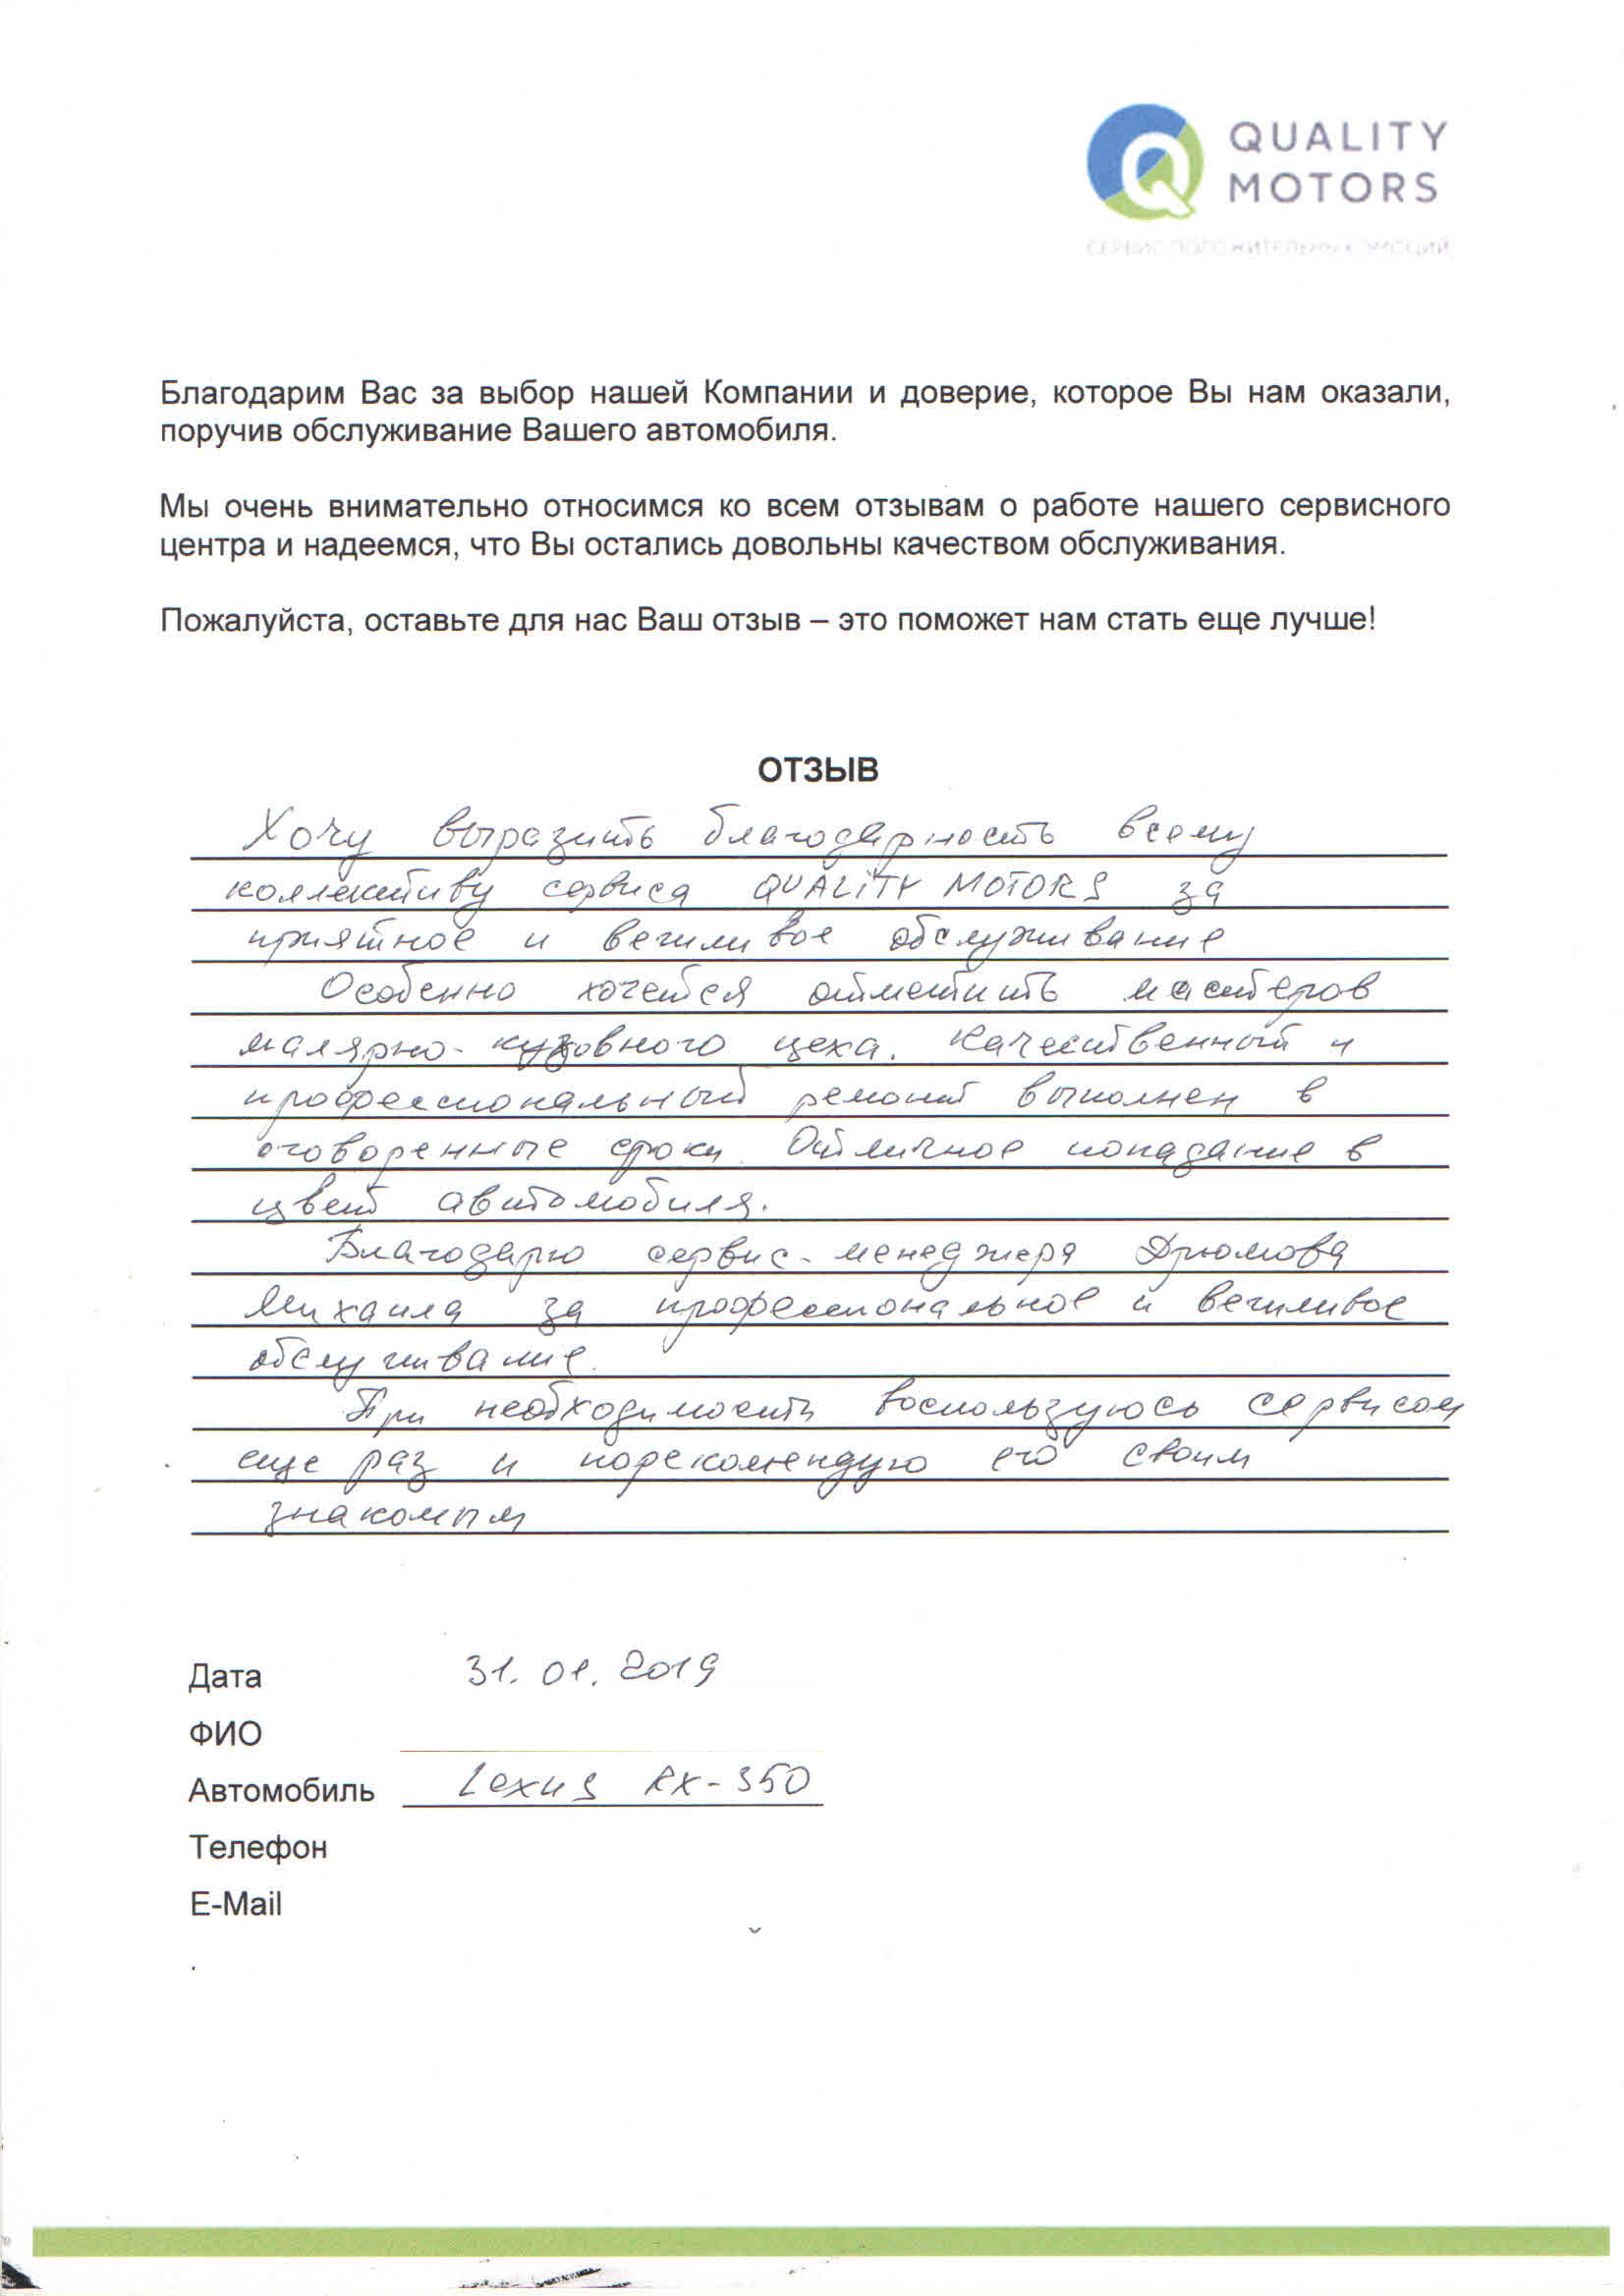 QUALITY
MOTORS
СЕРВИС ПОЛОЖИТЕЛЬНЫХ ЭМОЦИЙ
Благодарим Вас за выбор нашей Компании и доверие, которое Вы нам оказали,
поручив обслуживание Вашего автомобиля.
Мы очень внимательно относимся ко всем отзывам о работе нашего сервисного
центра и надеемся, что Вы остались довольны качеством обслуживания.
Пожалуйста, оставьте для нас Ваш отзыв – это поможет нам стать еще лучше!
ОТЗЫВ
Хочу выразить благодарность всему
коллективу сервиса QUALITY MOTORS за
приятное и вежливое обслуживание
Особенно хочется отметить мастеров
малярно-кузовного цеха. Качественный и
профессиональный ремонт выполнен в
оговоренные сроки. Отличное попадание в
цвет автомобиля.
Благодарю сервис-менеджера Дрюмова
Михаила за профессиональное и вежливое
обслуживание.
При необходимости воспользуюсь сервисом
еще раз и порекомендую его своим
знакомым
Дата 31.01.2019
ФИО
Автомобиль Lexus RX-350
Телефон
E-Mail